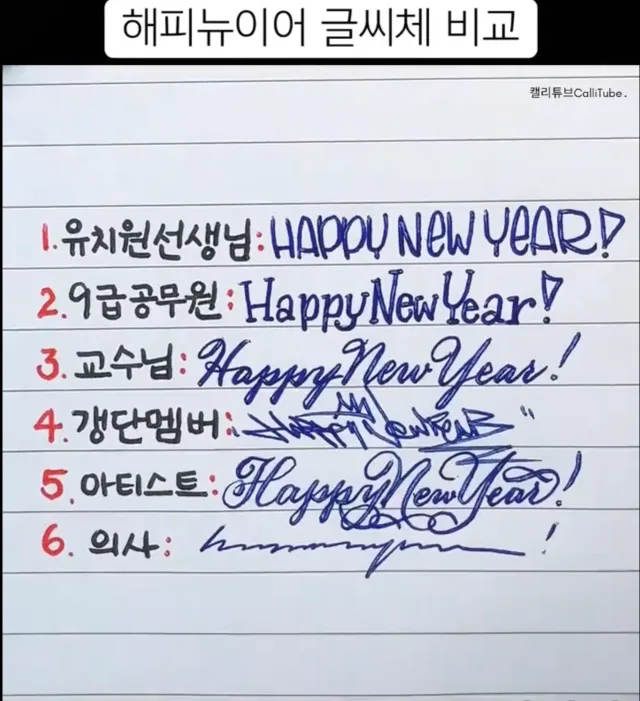 해피뉴이어 글씨체 비교
캘리튜브CalliTube.
1. 유치원선생님: HAPPY NEW YEAR!
2. 9급공무원: Happy New Year!
3. 교수님: Happy New Year!
4. 갱단멤버: Happy New Year
5. 아티스트: Happy New Year!
6. 의사: